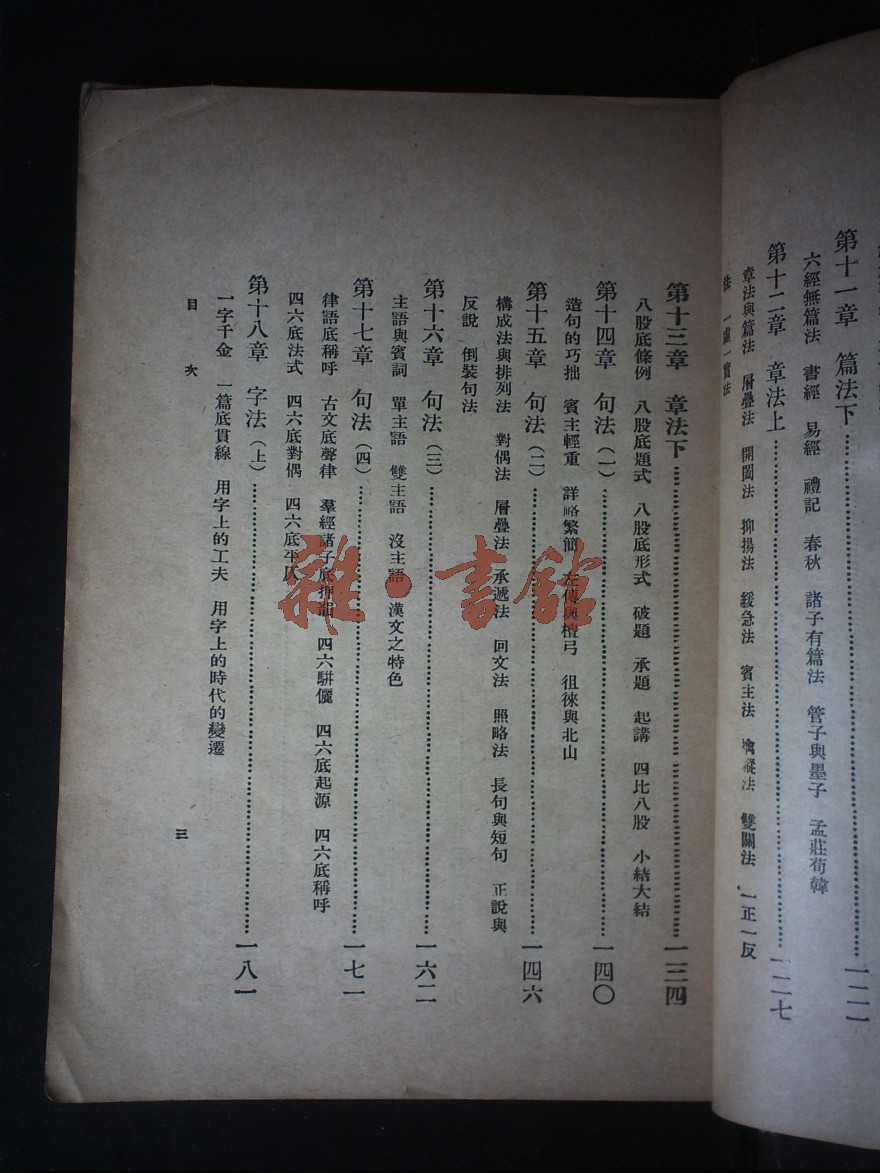 第十一章　篇法下……一二一
六經無篇法　書經　易經　禮記　春秋　諸子有篇法　管子與墨子　孟莊荀韓
第十二章　章法上……一二七
章法與篇法　層疊法　開闔法　抑揚法　緩急法　賓主法　擒縱法　雙關法　一正一反
法　一虛一實法
第十三章　章法下……一三四
八股底條例　八股底題式　八股底形式　破題　承題　起講　四比八股　小結大結
第十四章　句法（一）……一四〇
造句的巧拙　賓主輕重　詳略繁簡　左傳與檀弓　徂徠與北山
第十五章　句法（二）……一四六
構成法與排列法　對偶法　層疊法　承遞法　回文法　照略法　長句與短句　正說與
反說　倒裝句法
第十六章　句法（三）……一六二
主語與賓詞　單主語　雙主語　沒主語　漢文之特色
第十七章　句法（四）……一七一
律語底稱呼　古文底聲律　羣經諸子底押韻　四六駢儷　四六底起源　四六底稱呼
四六底法式　四六底對偶　四六底平仄
第十八章　字法（上）……一八一
一字千金　一篇底貫線　用字上的工夫　用字上的時代的變遷
目　次
三
雜·書館